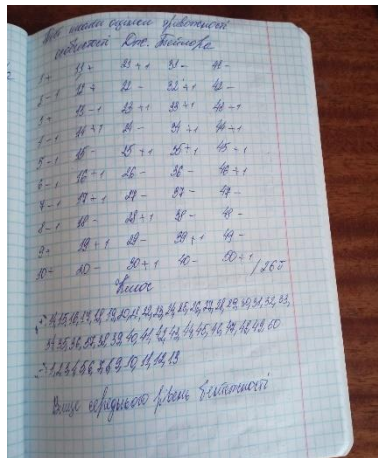 шкали оцінки тривожності
особистості Дж. Тейлора
1+ 11+ 21+1 31- 41-
2-1 12+ 22- 32+1 42-
3+ 13-1 23+1 33+1 43+1
4-1 14+1 24- 34+1 44+1
5-1 15- 25+1 35+1 45+1
6-1 16+1 26- 36- 46+1
7-1 17+1 27- 37- 47-
8-1 18- 28+1 38- 48-
9+ 19+1 29- 39+1 49-
10+ 20- 30+1 40- 50+1
/ 26б
Ключ
14, 15, 16, 17, 18, 19, 20, 21, 22, 23, 24, 25, 26, 27, 28, 29, 30, 31, 32, 33,
34, 35, 36, 37, 38, 39, 40, 41, 42, 43, 44, 45, 46, 47, 48, 49, 50
1, 2, 3, 4, 5, 6, 7, 8, 9, 10, 11, 12, 13
Вище середнього рівень тривожності